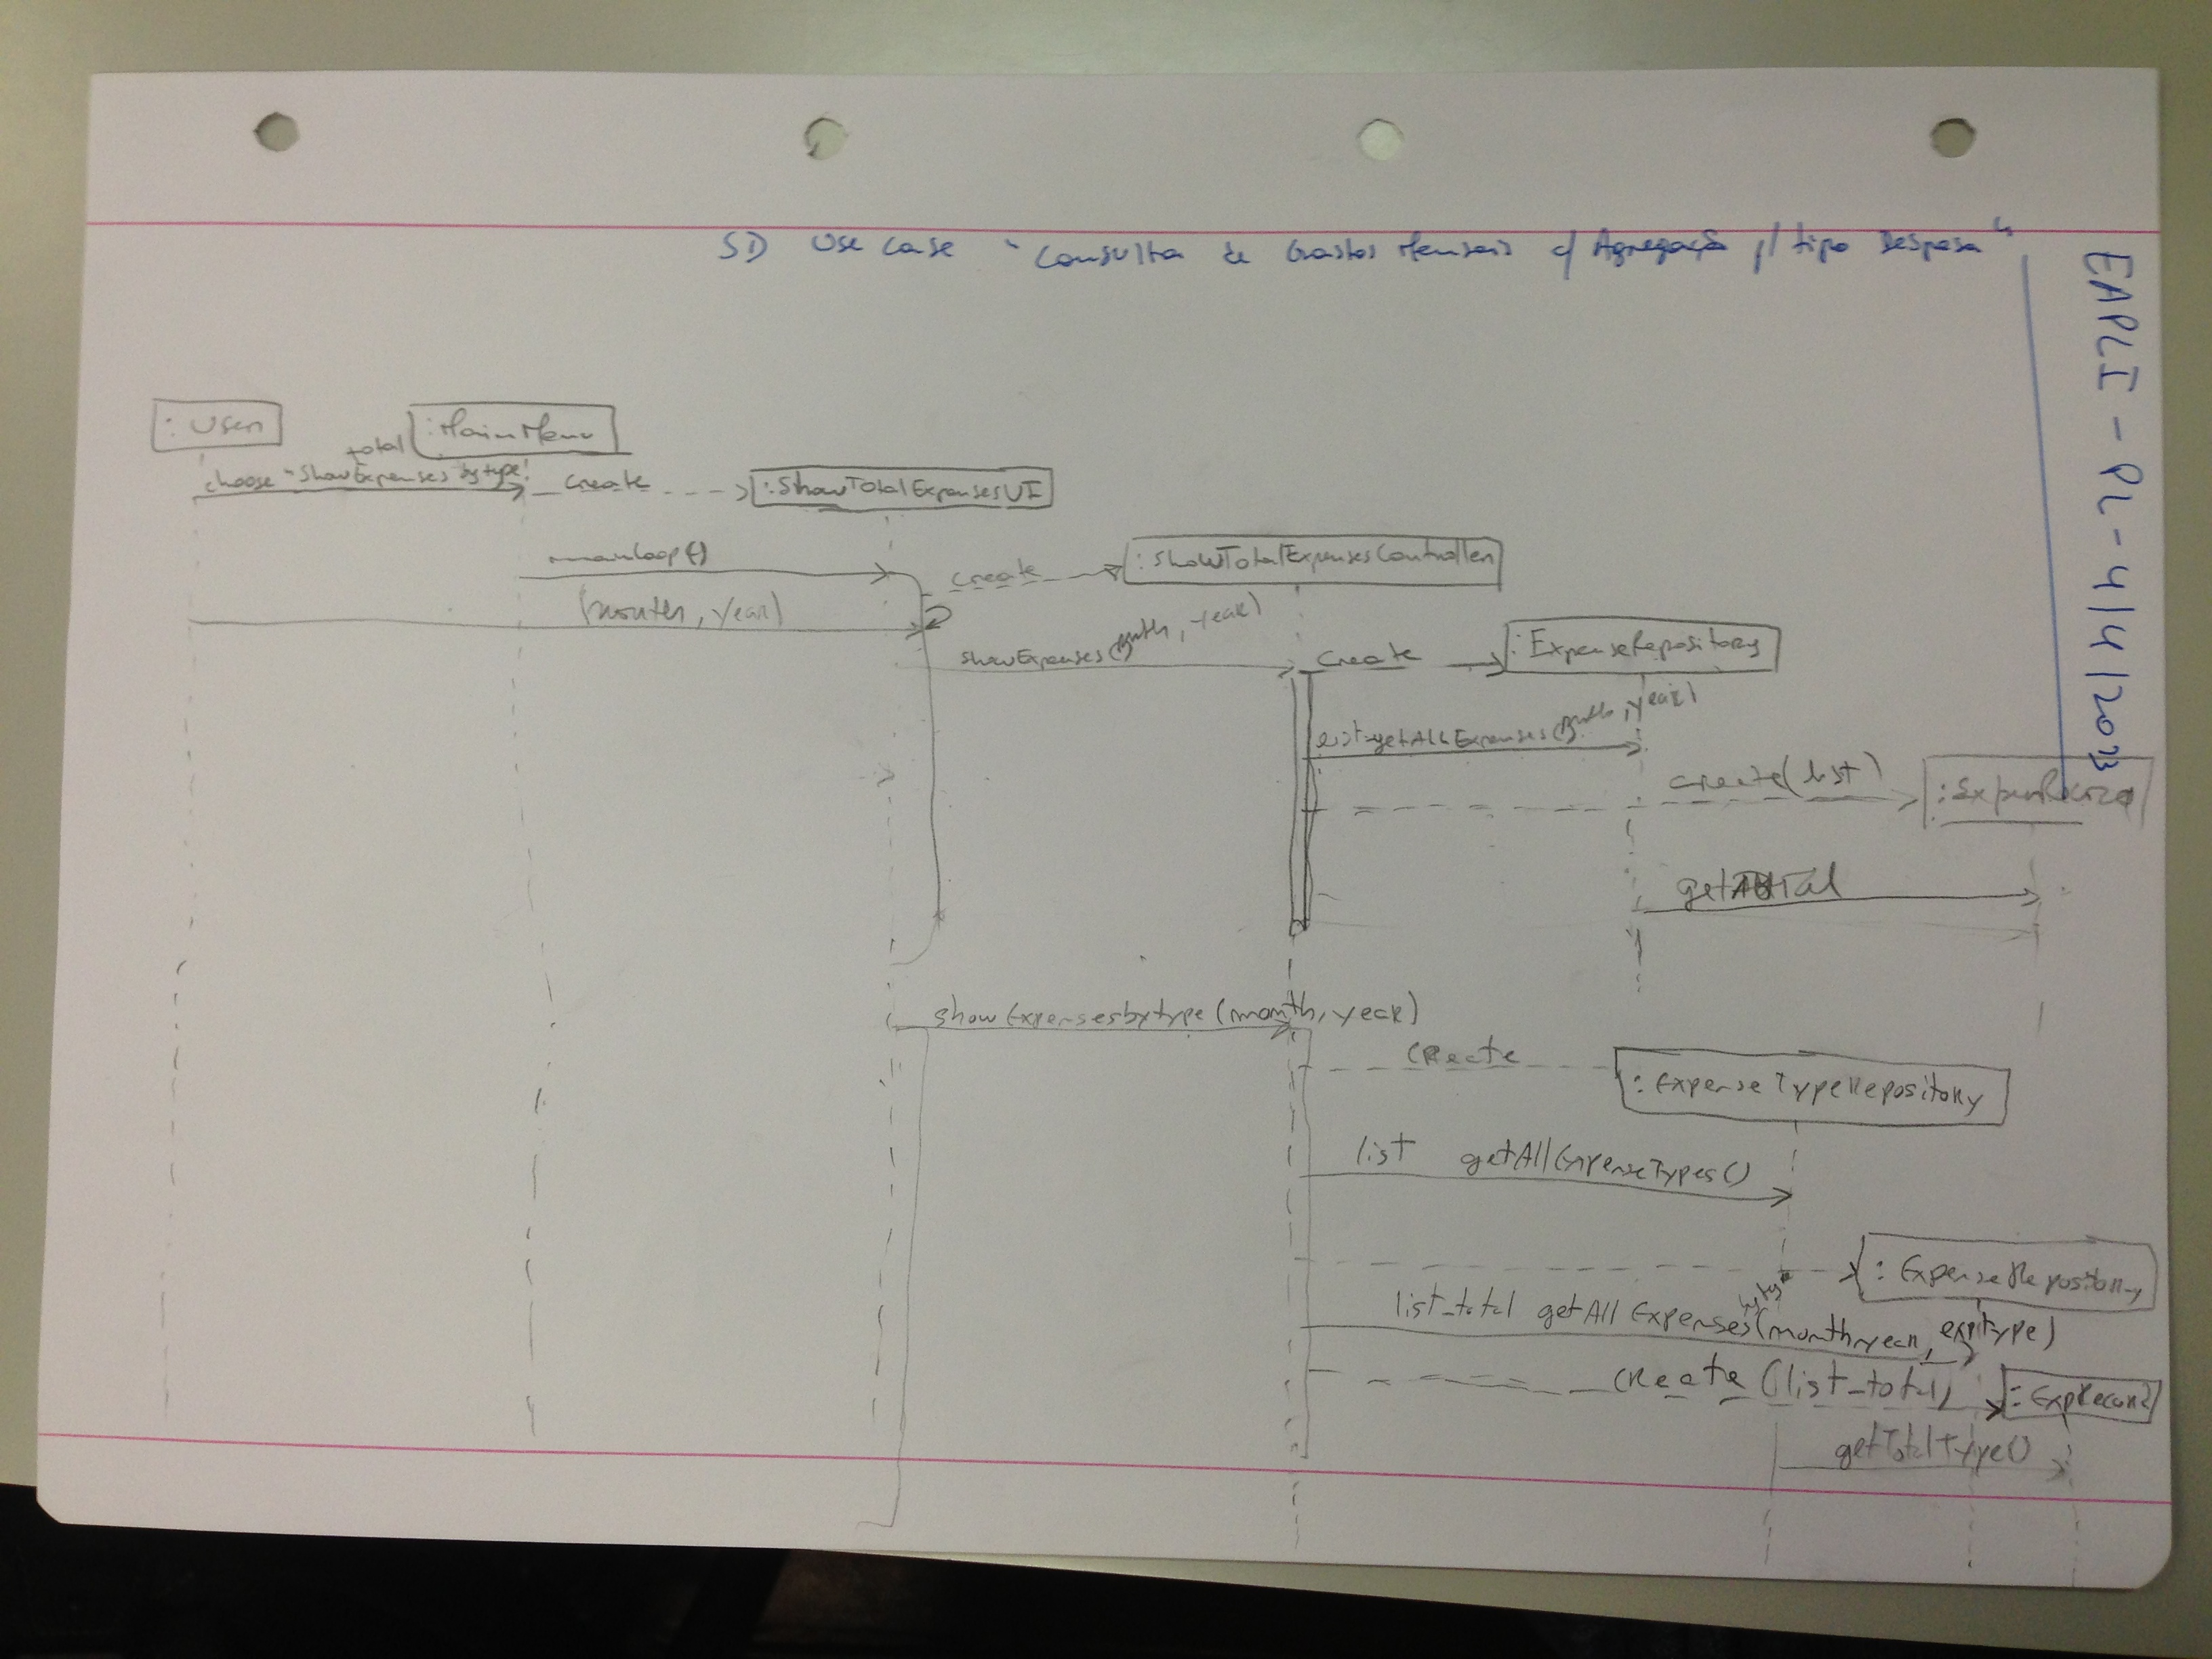 SD Use Case "Consulta de Gastos Mensais c/ Agregação p/ tipo Despesa"
EAPLI - PL - 4/4/2013
: User
:MainMenu
total
choose "ShowExpenses by type"
create
:ShowTotalExpensesUI
mainloop()
create
:ShowTotalExpensesController
(month, year)
showExpenses(month, year)
create
:ExpenseRepository
list=getAllExpenses(month, year)
create(list)
:ExpenRecord
getTotal
showExpensesbytype(month, year)
create
:ExpenseTypeRepository
list getAllExpenseTypes()
: ExpenseRepository
by type
list_total getAllExpenses(month, year, exptype)
create (list_total)
:ExpRecord2
getTotalType()